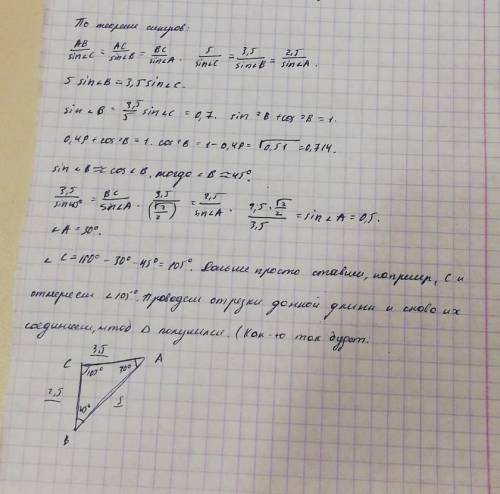 По теореме синусов:
AB/sin∠C = AC/sin∠B = BC/sin∠A. 5/sin∠C = 3,5/sin∠B = 2,5/sin∠A.
5 sin∠B = 3,5 sin∠C.
sin∠B = 3,5/5 sin∠C = 0,7. sin²B + cos²B = 1.
0,49 + cos²B = 1. cos²B = 1 - 0,49 = √0,51 = 0,714.
sin∠B ≈ cos∠B, тогда ∠B ≈ 45°.
3,5/sin45° = BC/sin∠A. 3,5/(√2/2) = 2,5/sin∠A. 2,5·√2/2 / 3,5 = sin∠A = 0,5.
∠A = 30°.
∠C = 180° - 30° - 45° = 105°. Дальше просто ставим, например, C и
отмеряем ∠105°. Проводим отрезки данной длины и снова их
соединяем, чтоб Δ получился. (Как-то так будет:
3,5
C A
105° 30°
2,5
45° 5
B